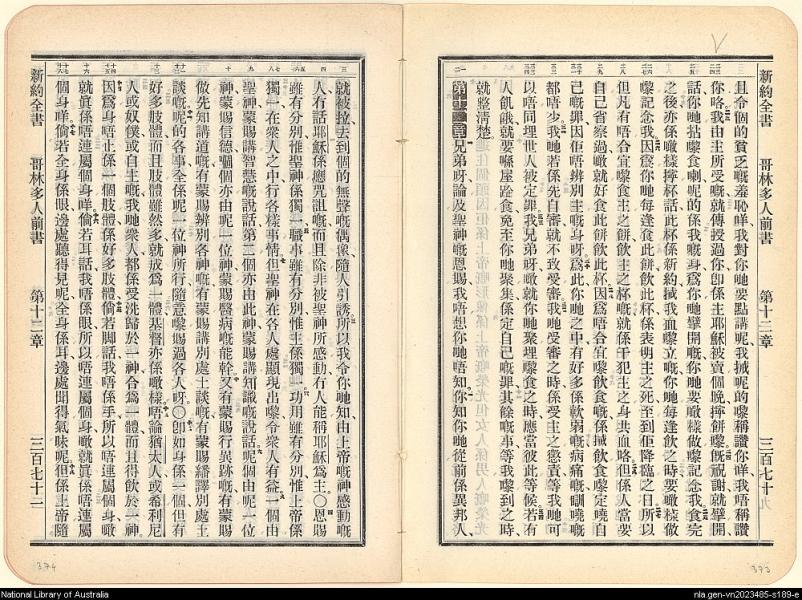 新約全書 哥林多人前書 第十二章 三百七十
且令個的貧乏嘅羞恥咩我對你哋要點講呢我㨢呢的嚟稱讚你咩我唔稱讚
你咯我由主所受嘅就傳授過你卽係主耶穌被賣個晚擰餅嚟旣祝謝就擘開
話你哋拈嚟食喇呢的係我嘅身爲你哋擘開嘅你哋要噉樣做嚟記念我食完
之後亦係噉樣擰杯話此杯係新約㨢我血嚟立嘅你哋每逢飲之時要噉樣做
嚟記念我因爲你哋每逢食此餅飲此杯係表明主之死至到佢降臨之日所以
但凡有唔合宜嚟食主之餅飲主之杯嘅就係干犯主之身共血咯但係人當要
自己省察過噉就好食此餅飲此杯因爲唔合宜嚟飲食嘅係㨢飲食嚟定曉自
己嘅罪因佢唔辨別主嘅身呀爲此你哋之中有好多係軟弱嘅病痛嘅瞓曉嘅
都唔少我哋若係先自審就不致受審我哋受審之時係受主之懲責等我哋可
以唔同埋世人被定罪我兄弟呀噉就你哋聚埋嚟食之時應當彼此等候若有
人飢餓就要喺屋跲食免至你哋聚集係定自己嘅罪其餘嘅事等我嚟到之時
就整淸楚
第十二章 兄弟呀論及聖神嘅恩賜我唔想你哋唔知你知你哋從前係異邦人
就被拉去到個的無聲嘅偶像隨人引誘所以我令你哋知由上帝嘅神感動嘅
人有話耶穌係應咒詛嘅而且除非被聖神所感動冇人能稱耶穌爲主〇恩賜
雖有分別惟聖神係獨一職事雖有分別惟主係獨一功用雖有分別惟上帝係
獨一在衆人之中行各樣事情但聖神在各人處顯現出嚟令衆人有益一個由
聖神蒙賜講智慧嘅說話第二個亦由此神蒙賜講知識嘅說話呢個由呢一位
神蒙賜信德嗰個亦由呢一位神蒙賜醫病嘅能幹又有蒙賜行異跡嘅有蒙賜
做先知講道嘅有蒙賜辨別各神嘅有蒙賜講別處土談嘅有蒙賜繙譯別處土
談嘅呢的各事全係呢一位神所行隨意嚟賜過各人呀〇卽如身係一個但有
好多肢體而且肢體雖然多就成爲一體基督亦係噉樣唔論猶太人或希利尼
人或奴僕或自主嘅我哋衆人都係受洗歸於一神合爲一體而且得飲於一神
因爲身唔止係一個肢體係好多肢體倘若脚話我唔係手所以唔連屬個身噉
就眞係唔連屬個身咩倘若耳話我唔係眼所以唔連屬個身噉就眞係唔連屬
個身咩倘若全身係眼邊處聽得見呢全身係耳邊處聞得氣味呢但係上帝隨
新約全書 哥林多人前書 第十二章 三百七十二
374
373
National Library of Australia
nla.gen-vn2023485-s189-e